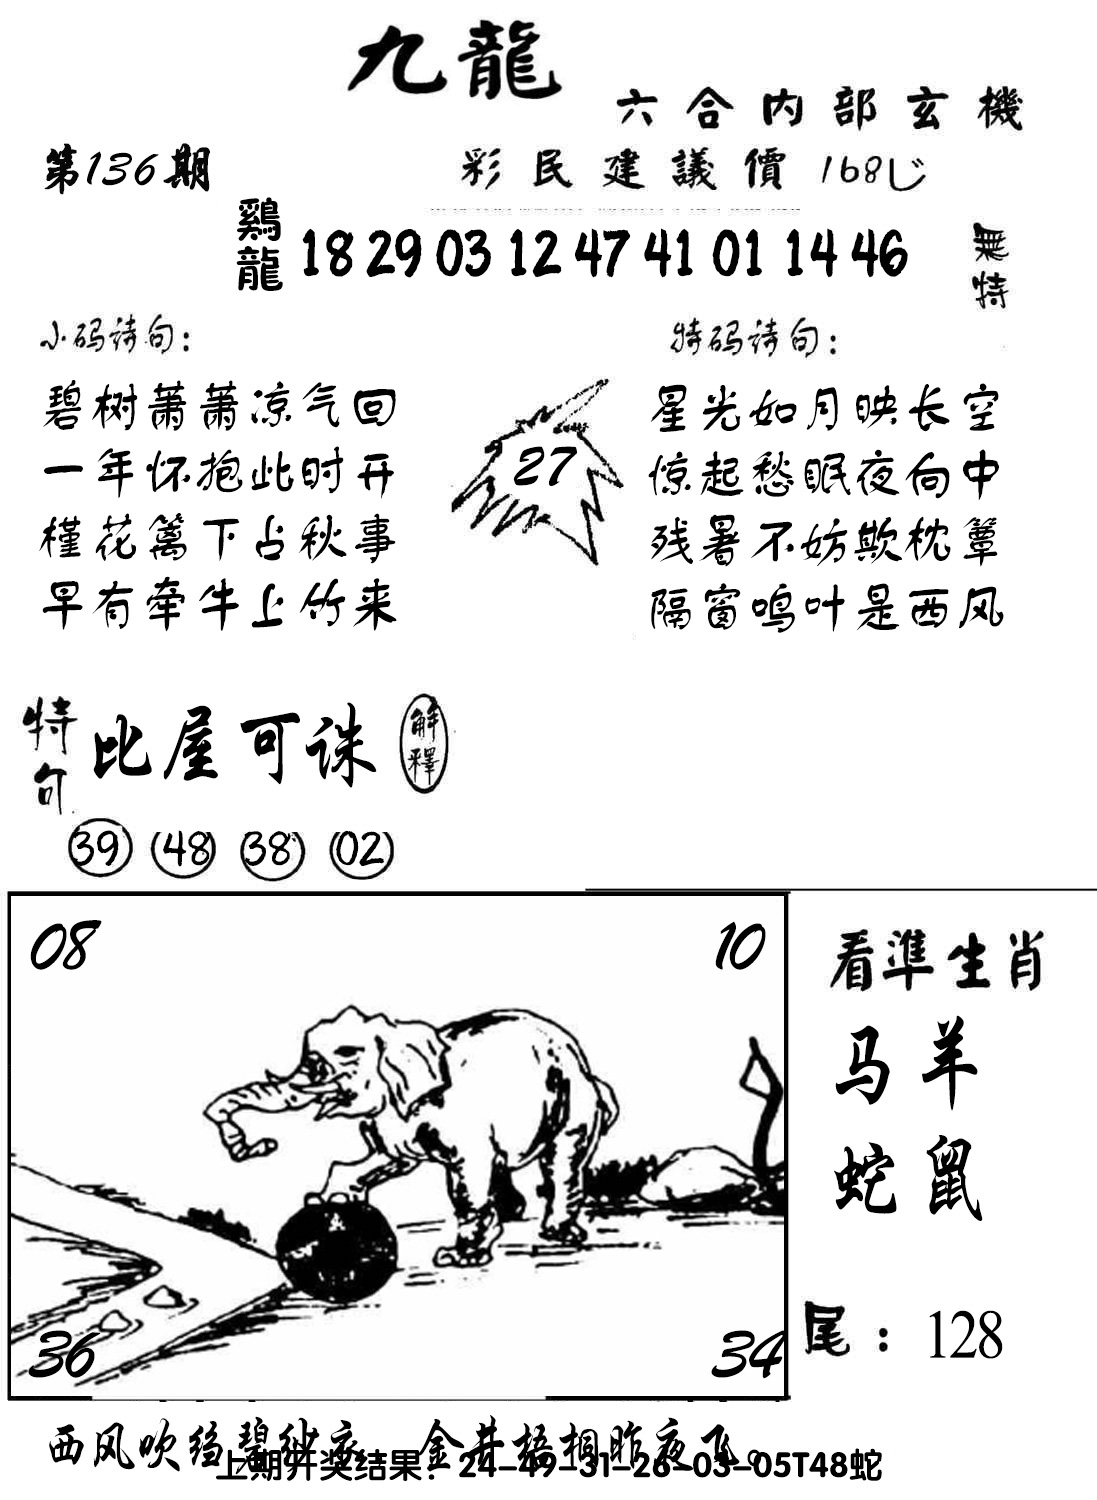 九龍
六合内部玄機
第136期
彩民建議價 168
鷄龍 18 29 03 12 47 41 01 14 46
無特
小码诗句：
特码诗句：
碧树萧萧凉气回
一年怀抱此时开
槿花篱下占秋事
早有牵牛上竹来
27
星光如月映长空
惊起愁眠夜向中
残暑不妨欺枕簟
隔窗鸣叶是西风
特句 比屋可诛 解釋
39 48 38 02
08
10
36
34
看準生肖
马羊
蛇鼠
尾：128
西风吹绉碧纱衣 金井梧桐昨夜飞。
上期开奖结果：24-49-31-26-03-05T48蛇